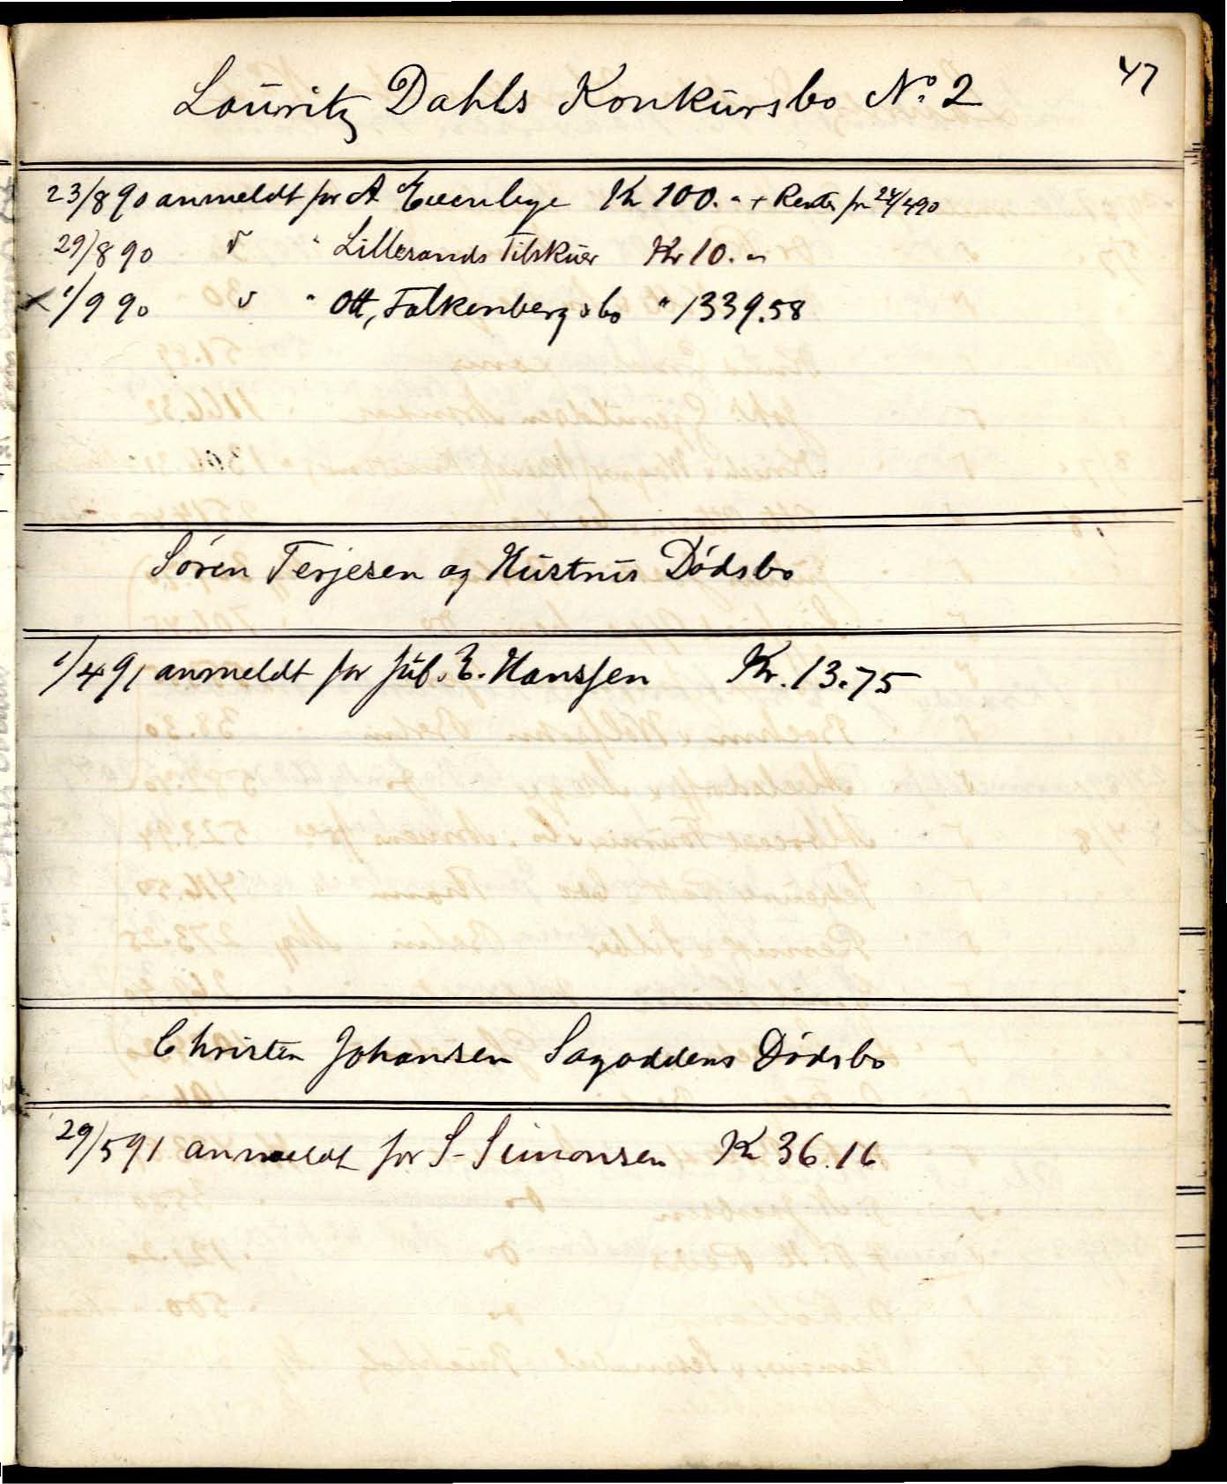 47
Lauritz Dahls Konkursbo No. 2
23/8 90 anmeldt for A Evenbye Kr 100. " + Renter fra 24/4 90
29/8 90 d " Lillesands Tilskuer Kr 10. "
x 1/9 90 d " Ott, Falkenberg & Co " 1339.58
Søren Terjesen og Hustrus Dødsbo
1/4 91 anmeldt for Jul. E. Hanssen Kr. 13.75
Christen Johansen Sagoddens Dødsbo
29/5 91 anmeldt for S. Simonsen Kr 36.16